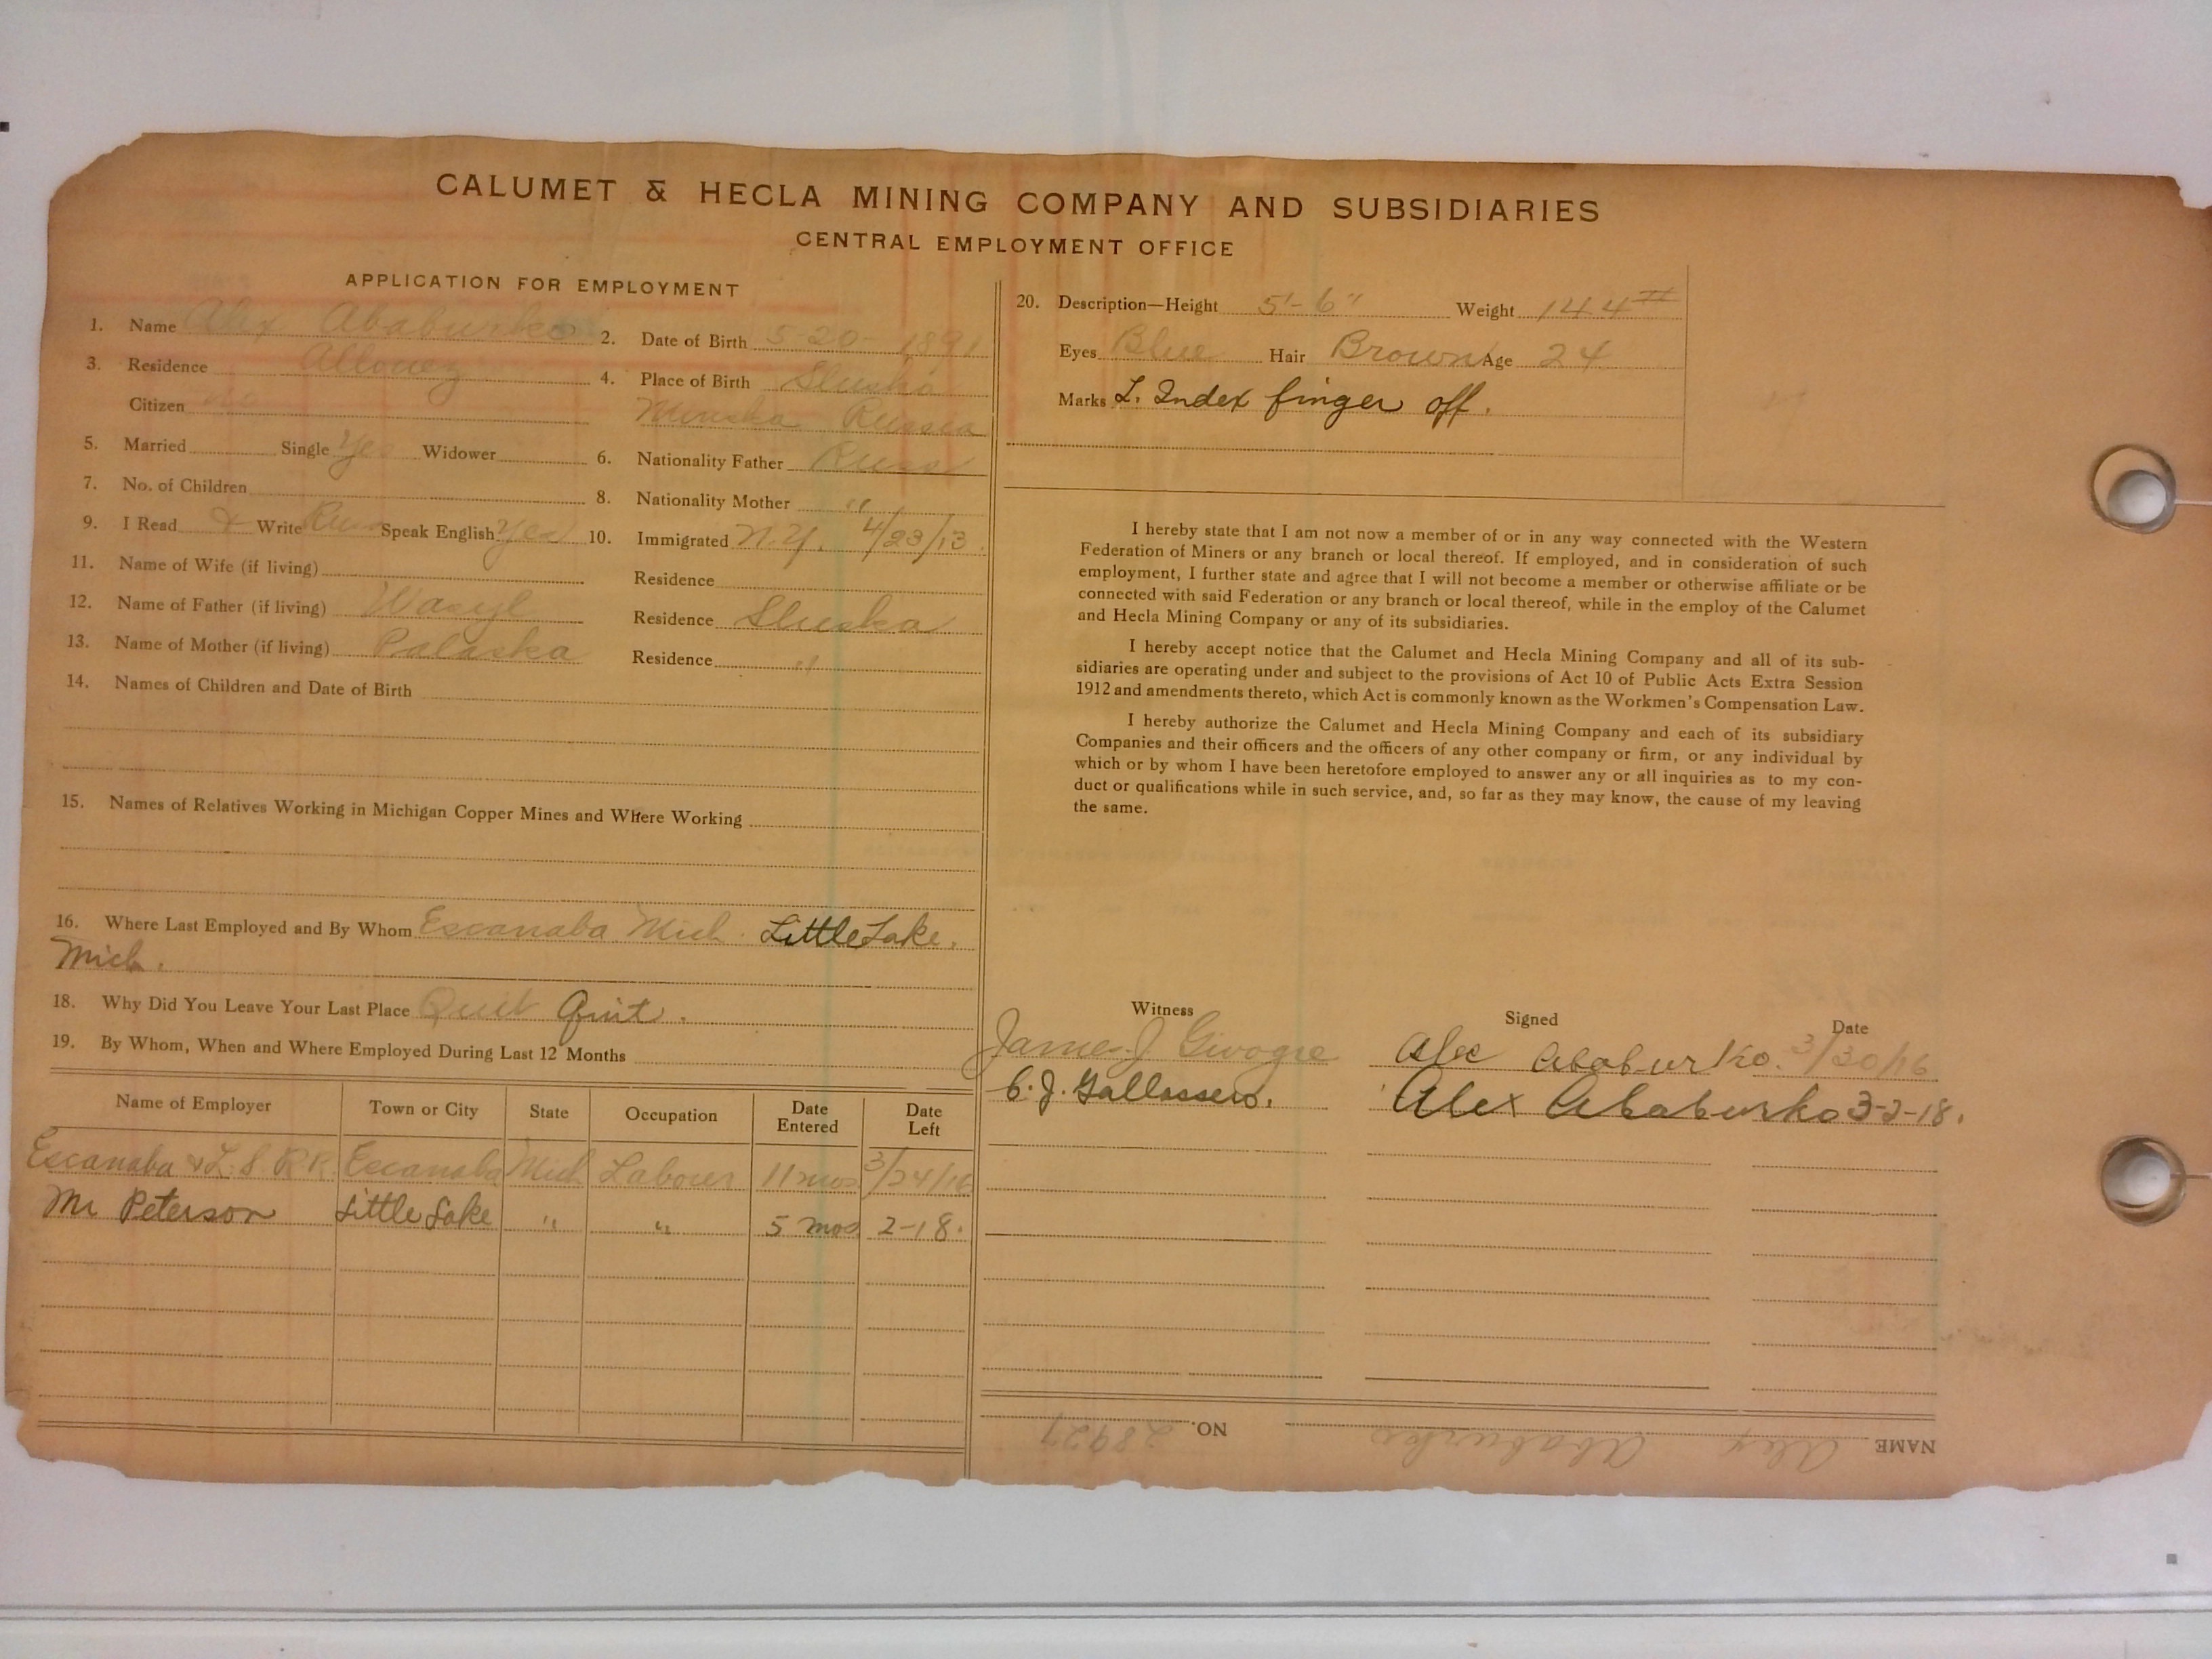 CALUMET & HECLA MINING COMPANY AND SUBSIDIARIES
CENTRAL EMPLOYMENT OFFICE
APPLICATION FOR EMPLOYMENT
1. Name Alex Ababurko 2. Date of Birth 5-20-1891
3. Residence Allouez 4. Place of Birth Slusha
Citizen no Minska Russia
5. Married Single Yes Widower 6. Nationality Father Russ
7. No. of Children 8. Nationality Mother "
9. I Read & Write Russ Speak English Yes 10. Immigrated N.Y. 4/23/13
11. Name of Wife (if living) Residence
12. Name of Father (if living) Wasyl Residence Sluska
13. Name of Mother (if living) Palaska Residence "
14. Names of Children and Date of Birth
15. Names of Relatives Working in Michigan Copper Mines and Where Working
16. Where Last Employed and By Whom Escanaba Mich. Little Lake,
Mich.
18. Why Did You Leave Your Last Place Quit Quit.
19. By Whom, When and Where Employed During Last 12 Months
Name of Employer Town or City State Occupation Date Entered Date Left
Escanaba & L.S. R R. Escanaba Mich Labourer 11 mos. 3/24/16
Mr Peterson Little Lake " " 5 mos. 2-18.
20. Description—Height 5'-6" Weight 144#
Eyes Blue Hair Brown Age 24
Marks L. Index finger off.
I hereby state that I am not now a member of or in any way connected with the Western
Federation of Miners or any branch or local thereof. If employed, and in consideration of such
employment, I further state and agree that I will not become a member or otherwise affiliate or be
connected with said Federation or any branch or local thereof, while in the employ of the Calumet
and Hecla Mining Company or any of its subsidiaries.
I hereby accept notice that the Calumet and Hecla Mining Company and all of its sub-
sidiaries are operating under and subject to the provisions of Act 10 of Public Acts Extra Session
1912 and amendments thereto, which Act is commonly known as the Workmen's Compensation Law.
I hereby authorize the Calumet and Hecla Mining Company and each of its subsidiary
Companies and their officers and the officers of any other company or firm, or any individual by
which or by whom I have been heretofore employed to answer any or all inquiries as to my con-
duct or qualifications while in such service, and, so far as they may know, the cause of my leaving
the same.
Witness Signed Date
James J. Alex Ababurko. 3/30/16
C. J. Alex Ababurko 3-2-18.
NAME Alex Ababurko NO. 28927